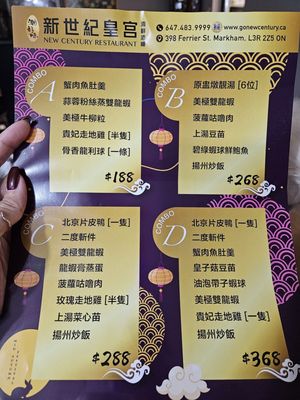 新世紀皇宮
NEW CENTURY RESTAURANT
647.483.9999 www.gonewcentury.ca
398 Ferrier St. Markham, L3R 2Z5 ON
COMBO
A
蟹肉魚肚羹
蒜蓉粉絲蒸雙龍蝦
美極牛柳粒
貴妃走地雞 [半隻]
骨香龍利球 [一條]
$188
COMBO
B
原盅燉靚湯 [6位]
美極雙龍蝦
菠蘿咕嚕肉
上湯豆苗
碧綠蝦球鮮鮑魚
揚州炒飯
$268
COMBO
C
北京片皮鴨 [一隻]
二度斬件
美極雙龍蝦
龍蝦膏蒸蛋
菠蘿咕嚕肉
玫瑰走地雞 [半隻]
上湯菜心苗
揚州炒飯
$288
COMBO
D
北京片皮鴨 [一隻]
二度斬件
蟹肉魚肚羹
皇子菇豆苗
油泡帶子蝦球
美極雙龍蝦
貴妃走地雞 [一隻]
揚州炒飯
$368